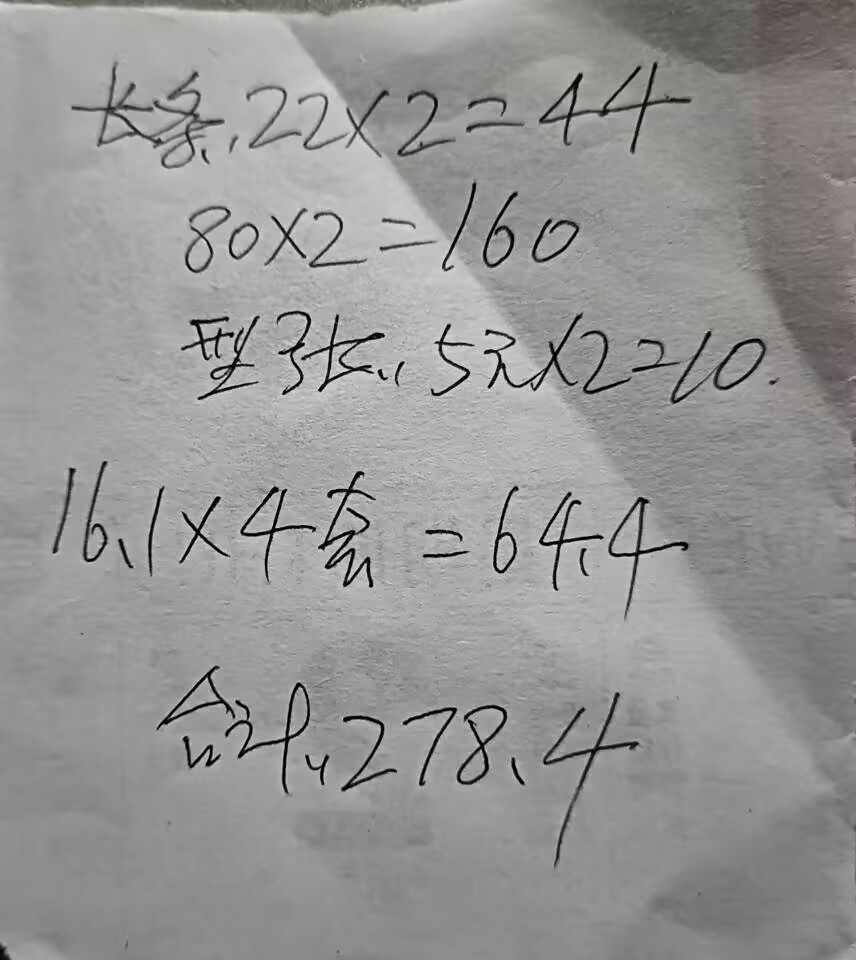 长条,22×2=44
80×2=160
型张,5元×2=10.
16.1×4套=64.4
合计,278.4